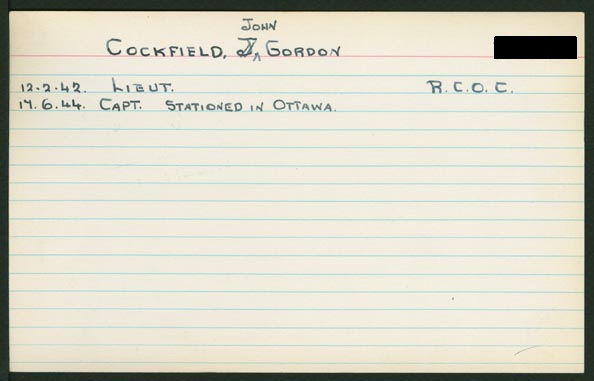 JOHN
COCKFIELD, J. ^ GORDON
12.2.42. LIEUT. R.C.O.C.
17.6.44. CAPT. STATIONED IN OTTAWA.